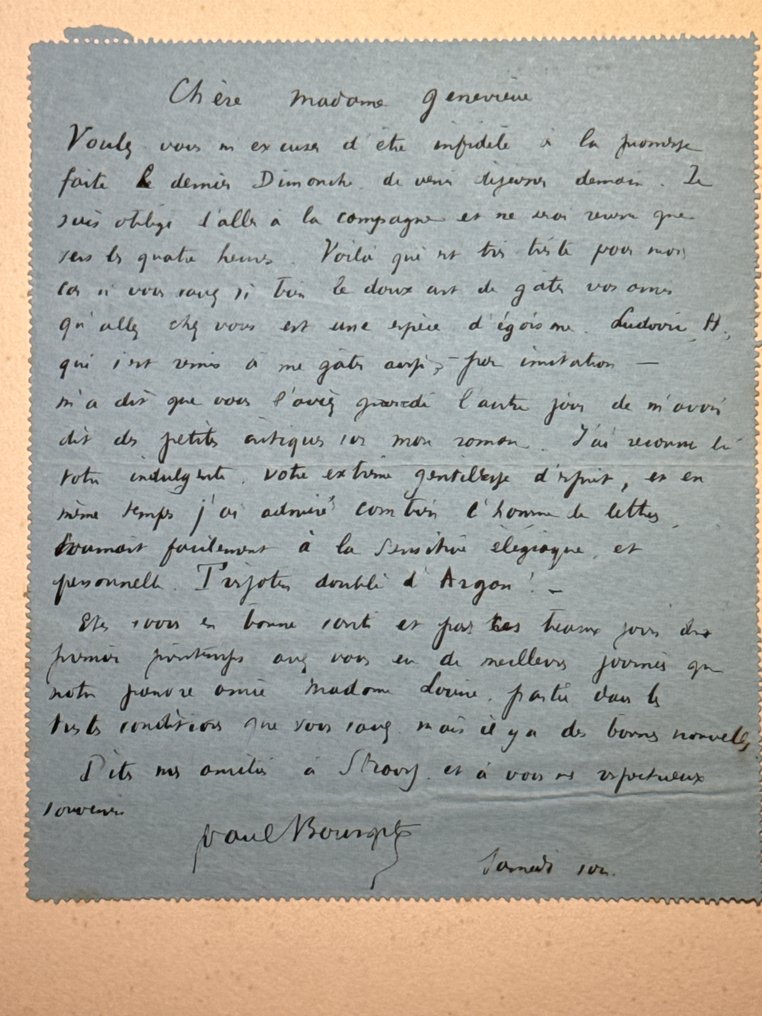 Chère Madame Geneviève
Voulez vous m'excuser d'être infidèle à la promesse
faite le dernier Dimanche de venir déjeuner demain. Je
suis obligé d'aller à la campagne et ne serai revenu que
vers les quatre heures. Voilà qui est très triste pour moi
car si vous savez si bien le doux art de gâter vos amis
qu'aller chez vous est une espèce d'égoïsme. Ludovic H.,
qui s'est remis à me gâter aussi, – par imitation –
m'a dit que vous l'aviez grondé l'autre jour de m'avoir
dit des petites critiques sur mon roman. J'ai reconnu là
votre indulgente, votre extrême gentillesse d'esprit, et en
même temps j'ai admiré combien l'homme de lettres
tournait facilement à la Sensitive élégiaque et
personnelle. Trissotin doublé d'Argan! –
Etes vous en bonne santé et par ces beaux jours du
premier printemps avez vous eu de meilleures journées que
notre pauvre amie Madame Louise, partie dans les
tristes conditions que vous savez mais il y a des bonnes nouvelles,
Dites mes amitiés à Straus, et à vous mes respectueux
souvenirs
Paul Bourget
Samedi soir.